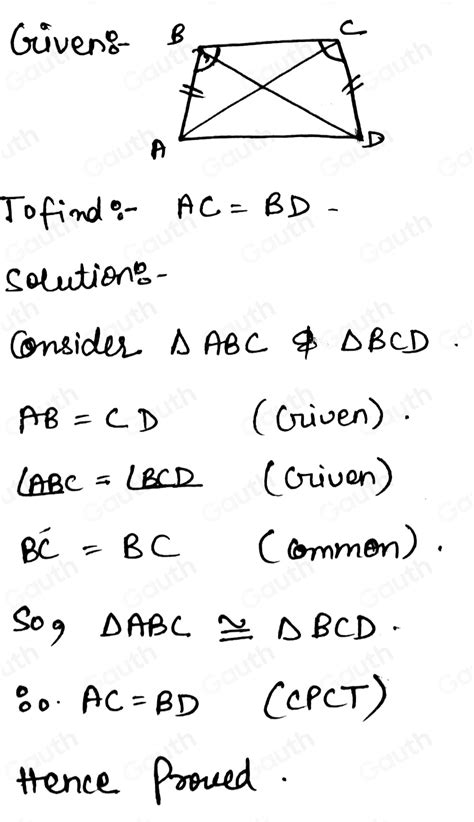 Given:-
B C
A D
To find:- AC = BD -
Solution:-
Consider Δ ABC & Δ BCD .
AB = CD (Given) .
∠ABC = ∠BCD (Given)
BC = BC (Common) .
So, ΔABC ≅ Δ BCD .
∴ AC = BD (CPCT)
Hence Proved .